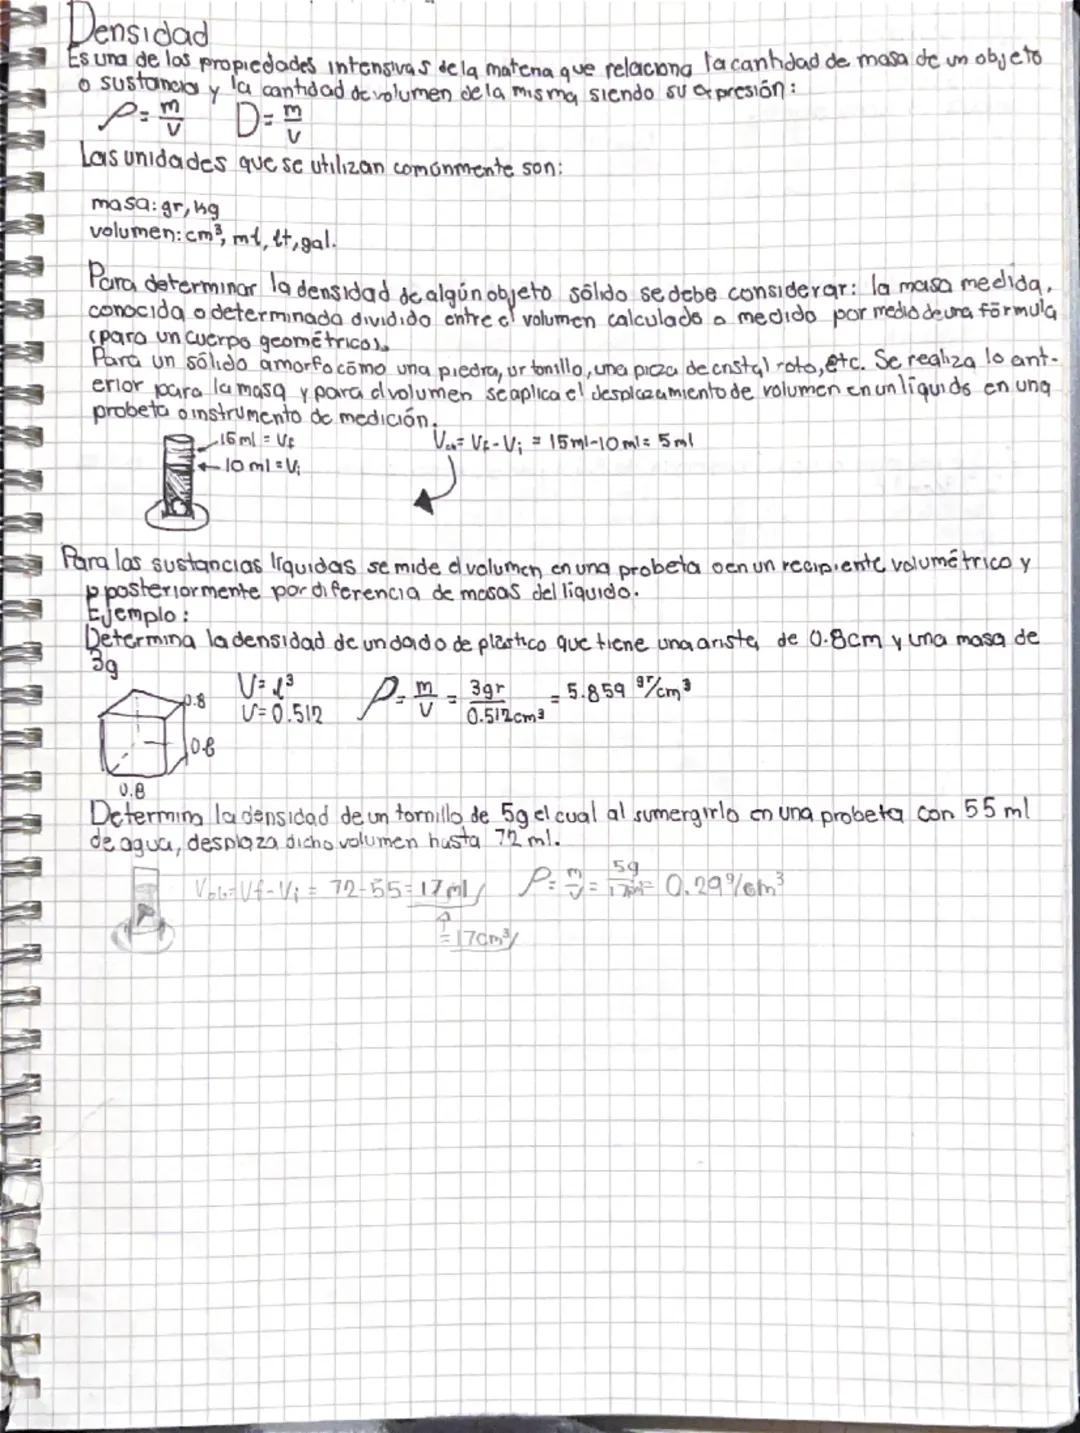 Densidad
Es una de las propiedades intensivas de la materia que relaciona la cantidad de masa de un objeto
o sustancia y la cantidad de volumen de la misma, siendo su expresión:
ρ = m/V D = m/V
Las unidades que se utilizan comúnmente son:
masa: gr, kg
volumen: cm³, ml, lt, gal.
Para determinar la densidad de algún objeto sólido se debe considerar: la masa medida,
conocida o determinada dividido entre el volumen calculado o medido por medio de una fórmula
(para un cuerpo geométrico).
Para un sólido amorfo cómo una piedra, un tonillo, una pieza de cristal roto, etc. Se realiza lo ant-
erior para la masa y para el volumen se aplica el desplazamiento de volumen en un líquido en una
probeta o instrumento de medición.
15ml = Vf
10ml = Vi
= Vf - Vi = 15ml - 10ml = 5ml
Para las sustancias líquidas se mide el volumen en una probeta o en un recipiente volumétrico y
posteriormente por diferencia de masas del líquido.
Ejemplo:
Determina la densidad de un dado de plástico que tiene una arista de 0.8cm y una masa de
3g
0.8
0.8
0.8
V = l³
V = 0.512
ρ = m/V = 3gr/0.512cm³ = 5.859 gr/cm³
Determina la densidad de un tornillo de 5g el cual al sumergirlo en una probeta con 55 ml
de agua, desplaza dicho volumen hasta 72 ml.
Vob = Vf - Vi = 72 - 55 = 17ml
= 17cm³
ρ = m/V = 5g/17ml = 0.29 g/cm³